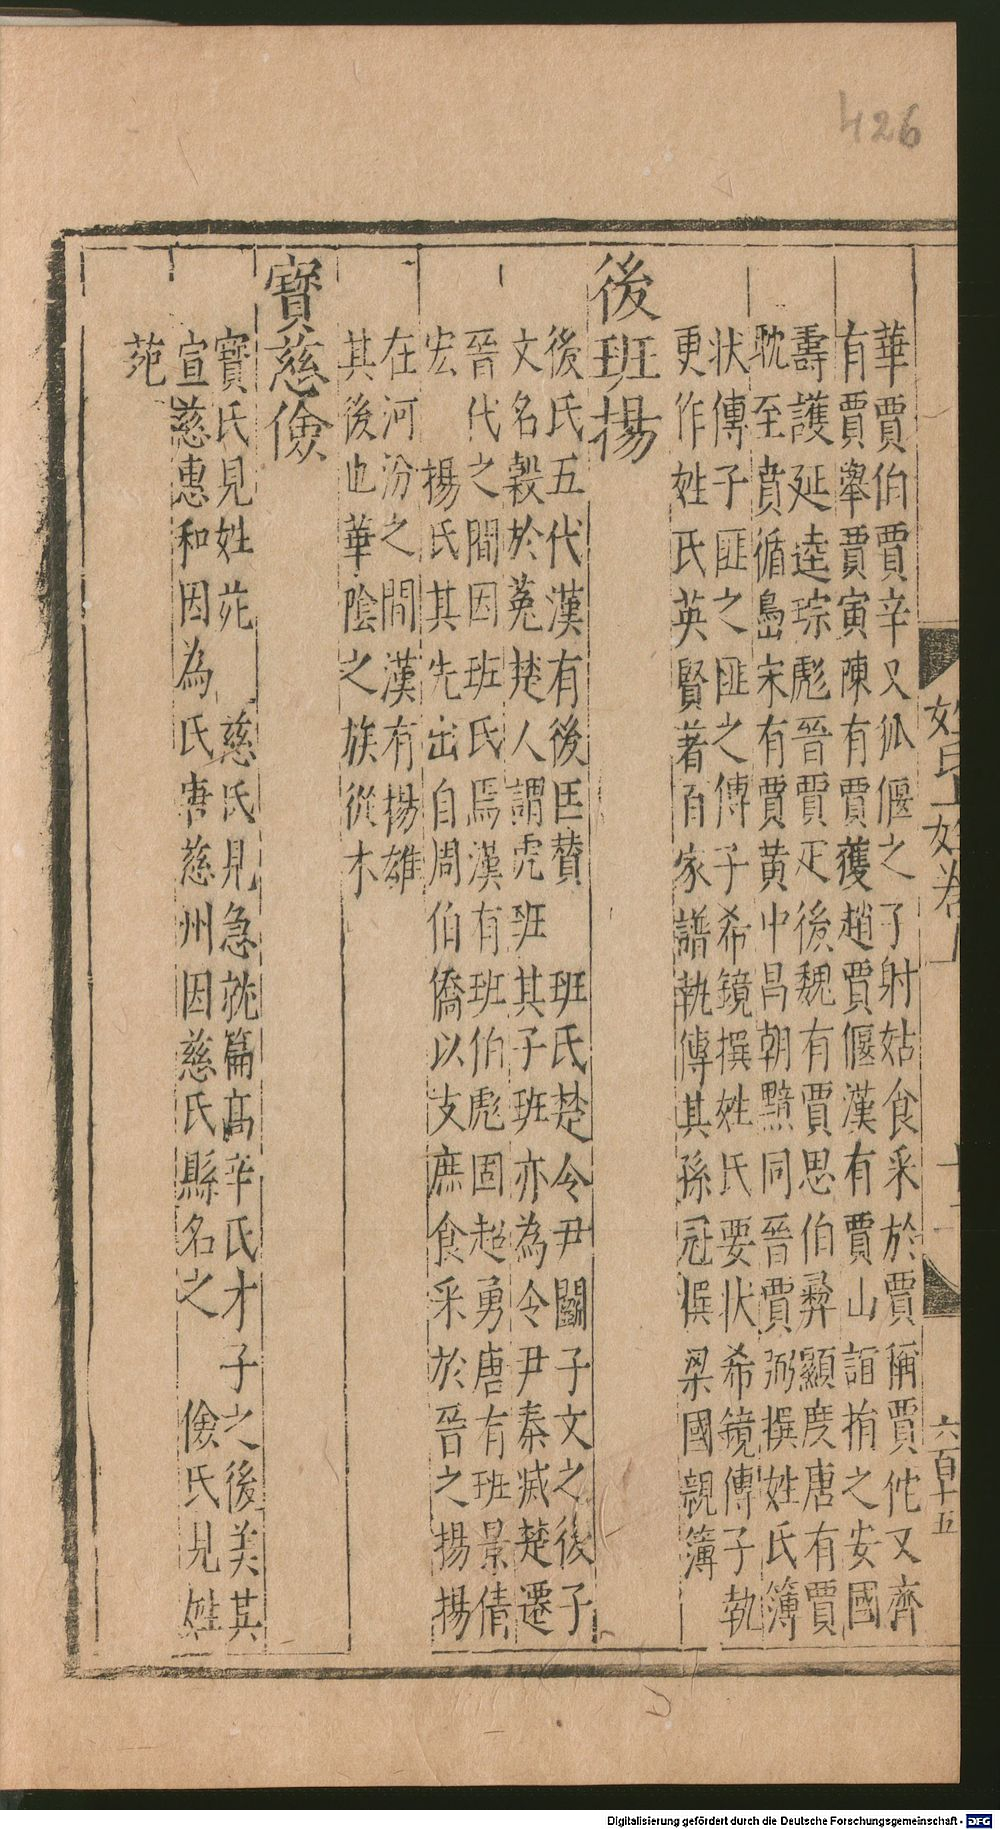 426
姓氏 姓卷 六百十五
華賈伯賈辛又狐偃之子射姑食采於賈稱賈佗又齊
有賈舉賈寅陳有賈獲趙賈偃漢有賈山誼捐之安國
壽護延逵琮彪晉賈疋後魏有賈思伯彛顯度唐有賈
耽至賁循島宋有賈黄中昌朝黯同晉賈弼撰姓氏簿
狀傳子匪之匪之傳子希鏡撰姓氏要状希鏡傳子執
更作姓氏英賢著百家譜執傳其孫冠撰梁國親簿
後班揚
後氏五代漢有後匡贊 班氏楚令尹鬭子文之後子
文名穀於菟楚人謂虎班其子班亦為令尹秦滅楚遷
晉代之間因班氏焉漢有班伯彪固超勇唐有班景倩
宏 揚氏其先出自周伯僑以支庶食采於晉之揚揚
在河汾之間漢有揚雄
其後也華陰之族從木
寳慈儉
寳氏見姓苑 慈氏見急就篇高辛氏才子之後美其
宣慈惠和因為氏唐慈州因慈氏縣名之 儉氏見姓
苑
Digitalisierung gefördert durch die Deutsche Forschungsgemeinschaft - DFG